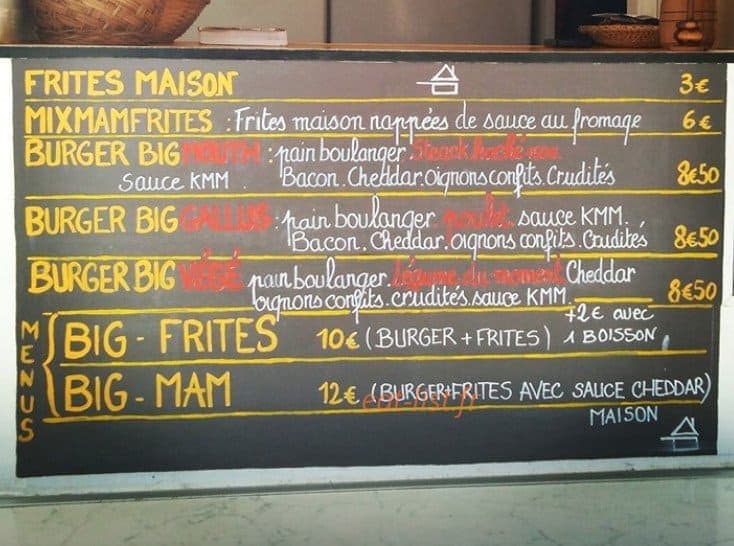 FRITES MAISON 3€
MIXMAMFRITES : Frites maison nappées de sauce au fromage 6€
BURGER BIG MOUTH : pain boulanger. Steack haché
Sauce KMM Bacon. Cheddar. Oignons confits. Crudités 8€50
BURGER BIG GALLUS : pain boulanger. poulet. sauce KMM.
Bacon. Cheddar. Oignons confits. Crudités 8€50
BURGER BIG VÉGÉ pain boulanger. légume du moment. Cheddar
oignons confits. crudités. sauce KMM. 8€50
MENUS
BIG - FRITES 10€ (BURGER + FRITES) +2€ avec
1 BOISSON
BIG - MAM 12€ (BURGER+FRITES AVEC SAUCE CHEDDAR)
MAISON